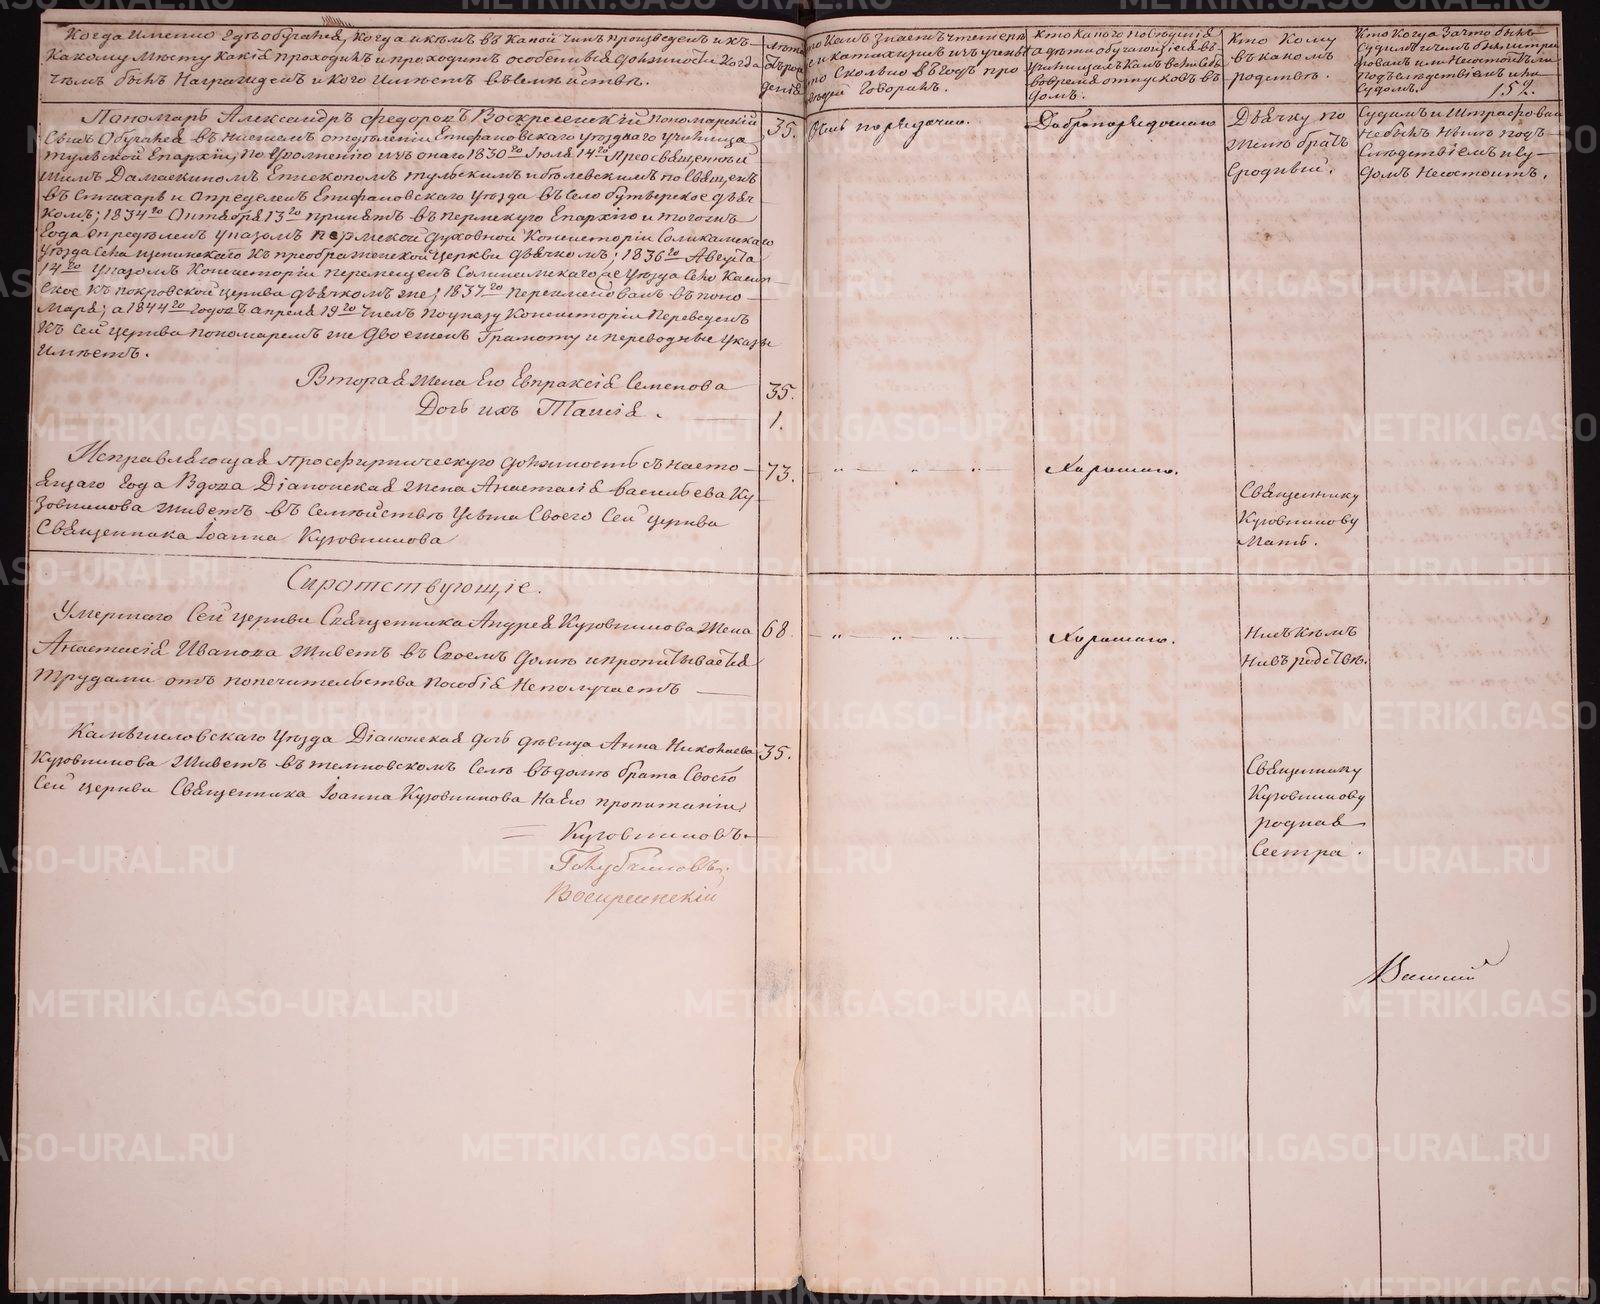 Когда именно Где обучался, когда и кемъ въ какой чинъ произведенъ и къ
какому мѣсту какія проходилъ и проходитъ особенныя должности когда
чѣмъ былъ награжденъ и кого имѣетъ въ семействѣ.
лѣта
отъ рож
денія
кто какъ знаетъ чтеніе
и катихизисъ изъ учены
сколько въ годъ про
говорилъ.
кто какого поведенія
а дѣти обучающіеся въ
училищахъ какъ вели себя
вовремя отпусковъ въ
домъ.
кто кому
въ какомъ
родствѣ.
кто когда За что былъ
судимъ и чемъ былъ штра
фованъ и не состоитъ ли
подъ слѣдствіемъ и
судомъ.
152.
Пономарь Александръ Федоровъ Воскресенскій пономарскій
Сынъ обучался въ низшемъ отделеніи Епифановскаго уезднаго училища
тульской Епархіи; по увольненіи изъ онаго 1830го Іюля 14го Преосвященней
шимъ Дамаскиномъ Епископомъ тульскимъ и белевскимъ посвященъ
въ Стихарь и Определенъ Епифановскаго уезда въ Село бутырское дьяч
комъ; 1834го Октября 13го принятъ въ пермскую Епархію и тогожъ
Года определенъ указомъ Пермской духовной Консисторіи Соликамскаго
уезда Села къ преображенской церкви дьячкомъ; 1836го Августа
14го указомъ Консисторіи перемещенъ Соликамскаго же уезда Село
къ покровской церкви дьячкомъ же; 1837го переименованъ въ поно
маря; а 1844го Года апреля 19го числа по указу Консисторіи переведенъ
къ Сей церкви пономаремъ же двоеженъ Грамоту и переводные указы
имѣетъ.
35.
Очень порядочно.
Добропорядочнаго
Дьячку по
женѣ братъ
сродный.
Судимъ и Штрафован
не былъ ныне подъ
Следствіемъ и су
домъ не состоитъ.
Вторая жена Его Евпраксія Семенова
35.
Дочь ихъ Таисія.
1.
Исправляющая просфирническую должность съ насто
ящаго года Вдова Діаконская жена Анастасія васильева Ку
зовникова живетъ въ Семействѣ у сына Своего Сей церкви
Священника Іоанна Кузовникова
73.
Хорошаго.
Священнику
Кузовникову
Мать.
Сиротствующіе.
Умершаго Сей церкви Священника Андрея Кузовникова жена
Анастасія Иванова живетъ въ Своемъ доме и пропитывается
трудами отъ попечительства пособія не получаетъ
68.
Хорошаго.
Ни съ кѣмъ
ни въ родствѣ.
Камышловскаго уезда Діаконская дочь девица Анна Николаева
Кузовникова живетъ въ темновскомъ Селе въ доме брата Своего
Сей церкви Священника Іоанна Кузовникова на его пропитаніи
35.
Священнику
Кузовникову
родная
Сестра.
Кузовниковъ.
Голубчиковъ.
Воскресенскій
METRIKI.GASO-URAL.RU